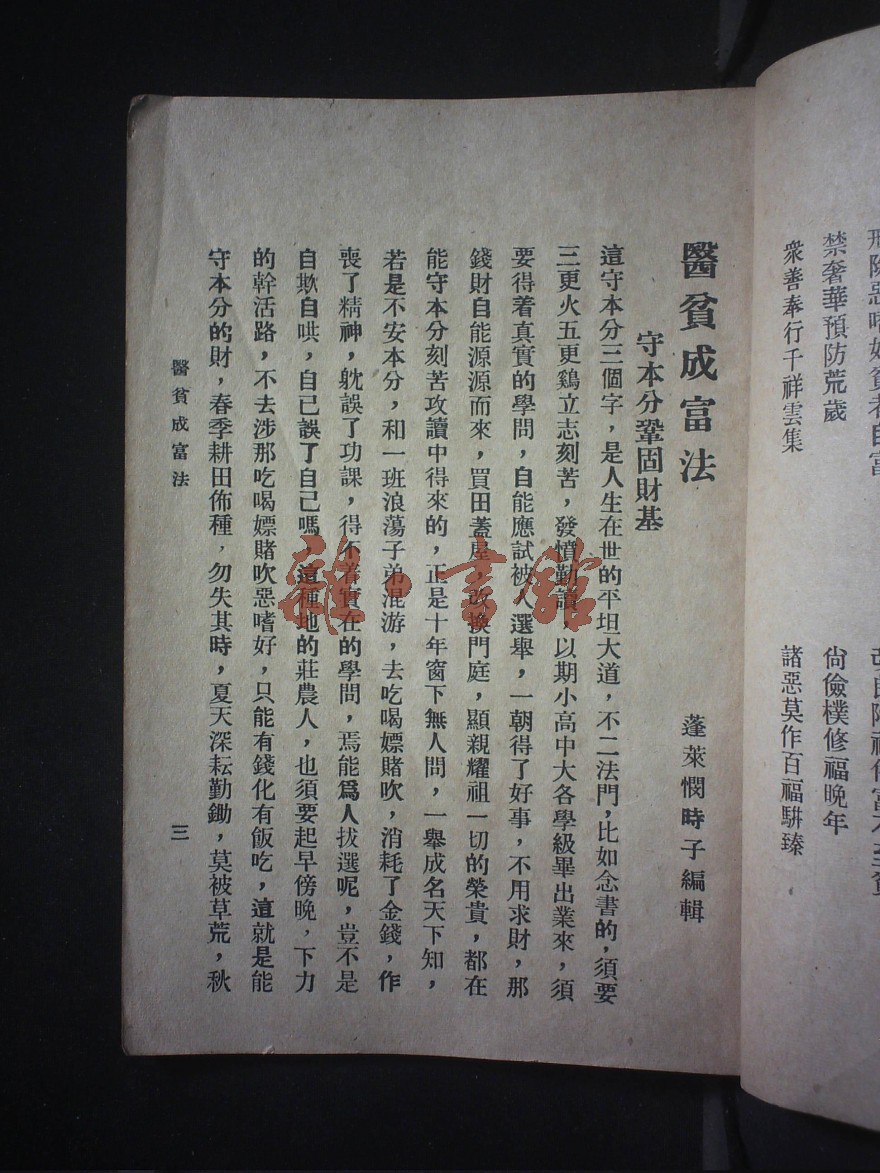 禁奢華預防荒歲
尙儉樸修福晚年
衆善奉行千祥雲集
諸惡莫作百福駢臻
醫貧成富法
蓬萊憫時子編輯
守本分鞏固財基
這守本分三個字，是人生在世的平坦大道，不二法門，比如念書的，須要
三更火五更鷄立志刻苦，發憤勤讀，以期小高中大各學級畢出業來，須
要得着真實的學問，自能應試被人選舉，一朝得了好事，不用求財，那
錢財自能源源而來，買田蓋屋，改換門庭，顯親耀祖一切的榮貴，都在
能守本分刻苦攻讀中得來的，正是十年窗下無人問，一舉成名天下知，
若是不安本分，和一班浪蕩子弟混游，去吃喝嫖賭吹，消耗了金錢，作
喪了精神，躭誤了功課，得不着實在的學問，焉能爲人拔選呢，豈不是
自欺自哄，自己誤了自己嗎，這種地的莊農人，也須要起早傍晚，下力
的幹活路，不去涉那吃喝嫖賭吹惡嗜好，只能有錢化有飯吃，這就是能
守本分的財，春季耕田佈種，勿失其時，夏天深耘勤鋤，莫被草荒，秋
醫貧成富法
三
雜書館